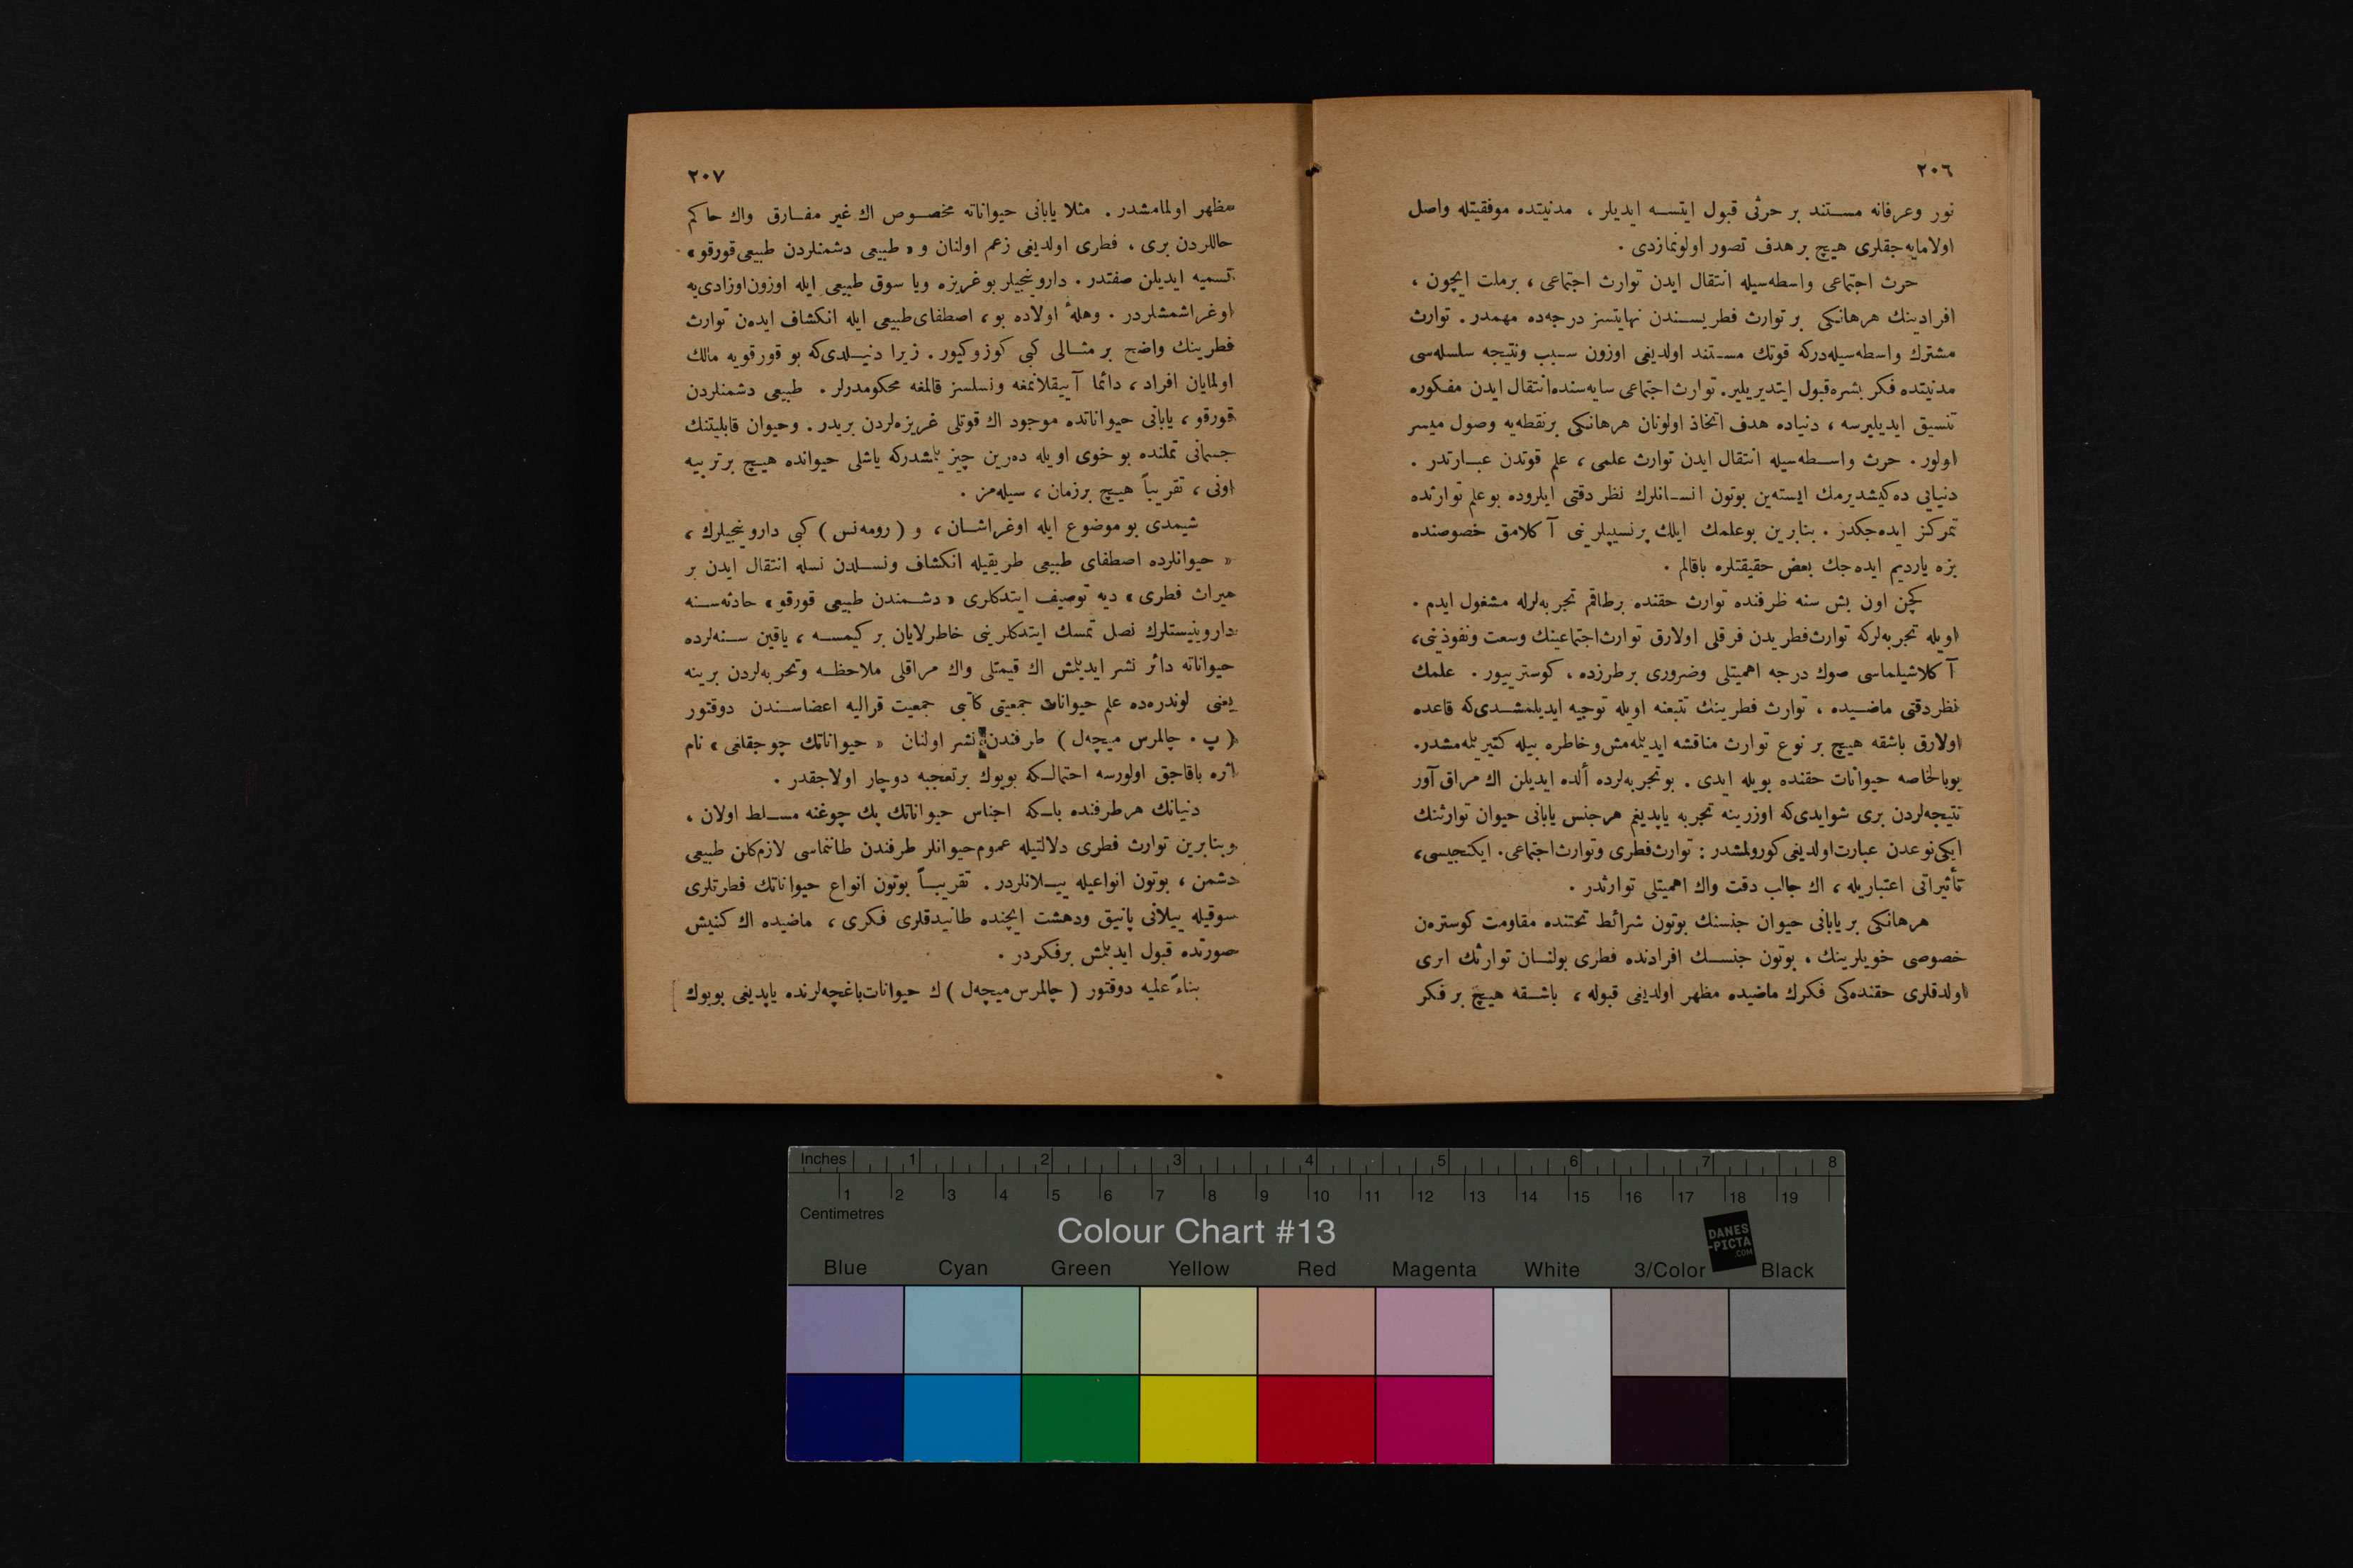 ٢٠٦
نور وعرفانه مستند بر حرثی قبول ایتسه ایدیلر ، مدنیتده موفقیتله واصل
اولامایه‌جقلری هیچ بر هدف تصور اولونمازدی .
حرث اجتماعی واسطه‌سیله انتقال ایدن توارث اجتماعی ، برملت ایچون ،
افرادینك هرهانکی بر توارث فطریسندن نهایتسز درجه‌ده مهمدر . توارث
مشترك واسطه‌سیله‌درکه قوتك مستند اولدیغی اوزون سبب ونتیجه سلسله‌سی
مدنیتده فکر بشره قبول ایتدیریلیر. توارث اجتماعی سایه‌سنده انتقال ایدن مفکوره
تنسیق ایدیلیرسه ، دنیاده هدف اتخاذ اولونان هرهانکی برنقطه‌یه وصول میسر
اولور . حرث واسطه‌سیله انتقال ایدن توارث علمی ، علم قوتدن عبارتدر .
دنیایی ده‌کیشدیرمك ایسته‌ین بوتون انسانلرك نظر دقتی ایلروده بوعلم توارثده
تمرکز ایده‌جکدر . بنابرین بوعلمك ایلك پرنسیپلرینی آکلامق خصوصنده
بزه یاردیم ایده‌جك بعض حقیقتلره باقالم .
کچن اون بش سنه ظرفنده توارث حقنده برطاقم تجربه‌لرله مشغول ایدم .
اویله تجربه‌لرکه توارث فطریدن فرقلی اولارق توارث اجتماعینك وسعت ونفوذینی،
آکلاشیلماسی صوك درجه اهمیتلی وضروری برطرزده ، کوستریيور . علمك
نظردقتی ماضیده ، توارث فطرینك تتبعنه اویله توجیه ایدیلمشدی‌که قاعده
اولارق باشقه هیچ بر نوع توارث مناقشه ایدیلمه‌مش وخاطره بیله کتیریلمه‌مشدر.
بوبالخاصه حیوانات حقنده بویله ایدی . بوتجربه‌لرده ألده ایدیلن اك مراق آور
نتیجه‌لردن بری شوایدی‌که اوزرینه تجربه یاپدیغم هرجنس یابانی حیوان توارثنك
ایکی نوعدن عبارت اولدیغی کورولمشدر : توارث فطری وتوارث اجتماعی. ایکنجیسی،
تأثیراتی اعتباریله ، اك جالب دقت واك اهمیتلی توارثدر .
هرهانکی بر یابانی حیوان جنسنك بوتون شرائط تحتنده مقاومت کوسترەن
خصوصی خویلرینك ، بوتون جنسك افرادنده فطری بولنان توارثك اثری
اولدقلری حقنده‌کی فکرك ماضیده مظهر اولدیغی قبوله ، باشقه هیچ بر فکر
٢٠٧
مظهر اولمامشدر . مثلا یابانی حیواناته مخصوص اك غیر مفارق واك حاکم
حاللردن بری ، فطری اولدیغی زعم اولنان و « طبیعی دشمنلردن طبیعی قورقو »
تسمیه ایدیلن صفتدر . داروینجیلر بوغریزه ویا سوق طبیعی ایله اوزون اوزادی‌یه
اوغراشمشلردر . وهلهٔ اولاده بو ، اصطفای طبیعی ایله انکشاف ایدەن توارث
فطرینك واضح بر مثالی کبی کوزوکیور . زیرا دنیلدی‌که بو قورقویه مالك
اولمایان افراد ، دائما آییقلانمغه ونسلسز قالمغه محکومدرلر . طبیعی دشمنلردن
قورقو ، یابانی حیواناتده موجود اك قوتلی غریزه‌لردن بریدر . وحیوان قابلیتنك
جسمانی تملنده بو خوی اویله دەرین چیزیلمشدرکه یاشلی حیوانده هیچ برتربیه
اونی ، تقریباً هیچ برزمان ، سیله‌مز .
شیمدی بو موضوع ایله اوغراشان ، و ( رومه‌نس ) کبی داروینجیلرك ،
« حیوانلرده اصطفای طبیعی طریقیله انکشاف ونسلدن نسله انتقال ایدن بر
میراث فطری » دیه توصیف ایتدکلری « دشمندن طبیعی قورقو » حادثه‌سنه
داروینیستلرك نصل تمسك ایتدکلرینی خاطرلایان بر کیمسه ، یاقین سنه‌لرده
حیواناته دائر نشر ایدیلمش اك قیمتلی واك مراقلی ملاحظه وتجربه‌لردن برینه
یعنی لوندره‌ده علم حیوانات جمعیتی کاتبی جمعیت قرالیه اعضاسندن دوقتور
( پ . چالمرس میچه‌ل ) طرفندن نشر اولنان « حیواناتك چوجقلغی » نام
اثره باقاجق اولورسه احتمالکه بویوك برتعجبه دوچار اولاجقدر .
دنیانك هرطرفنده باـکه اجناس حیواناتك پك چوغنه مسلط اولان ،
وبنابرین توارث فطری دلالتیله عموم حیوانلر طرفندن طانماسی لازم‌کلن طبیعی
دشمن ، بوتون انواعیله ییلانلردر . تقریباً بوتون انواع حیواناتك فطرتلری
سوقیله ییلانی پانیق ودهشت ایچنده طانیدقلری فکری ، ماضیده اك کنیش
صورتده قبول ایدیلمش برفکردر .
بناءً علیه دوقتور ( چالمرس میچه‌ل ) ك حیوانات باغچه‌لرنده یاپدیغی بویوك
Inches 1 2 3 4 5 6 7 8
1 2 3 4 5 6 7 8 9 10 11 12 13 14 15 16 17 18 19
Centimetres
Colour Chart #13
DANES-PICTA.COM
Blue Cyan Green Yellow Red Magenta White 3/Color Black